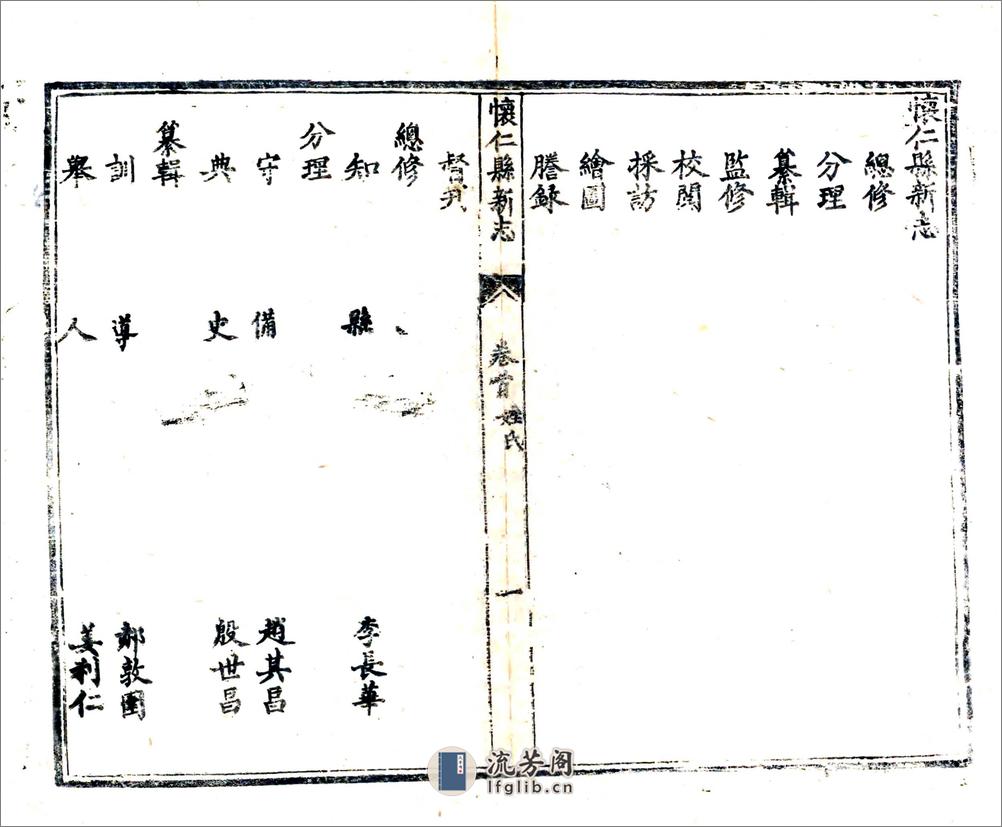 懷仁縣新志
總修
分理
纂輯
監修
校閱
採訪
繪圖
謄錄
懷仁縣新志
卷首
姓氏
一
督刋
總修
知縣 李長華
分理
守備 趙其昌
典史 殷世昌
纂輯
訓導 郝敦圉
舉人 姜利仁
流芳阁
lfglib.cn